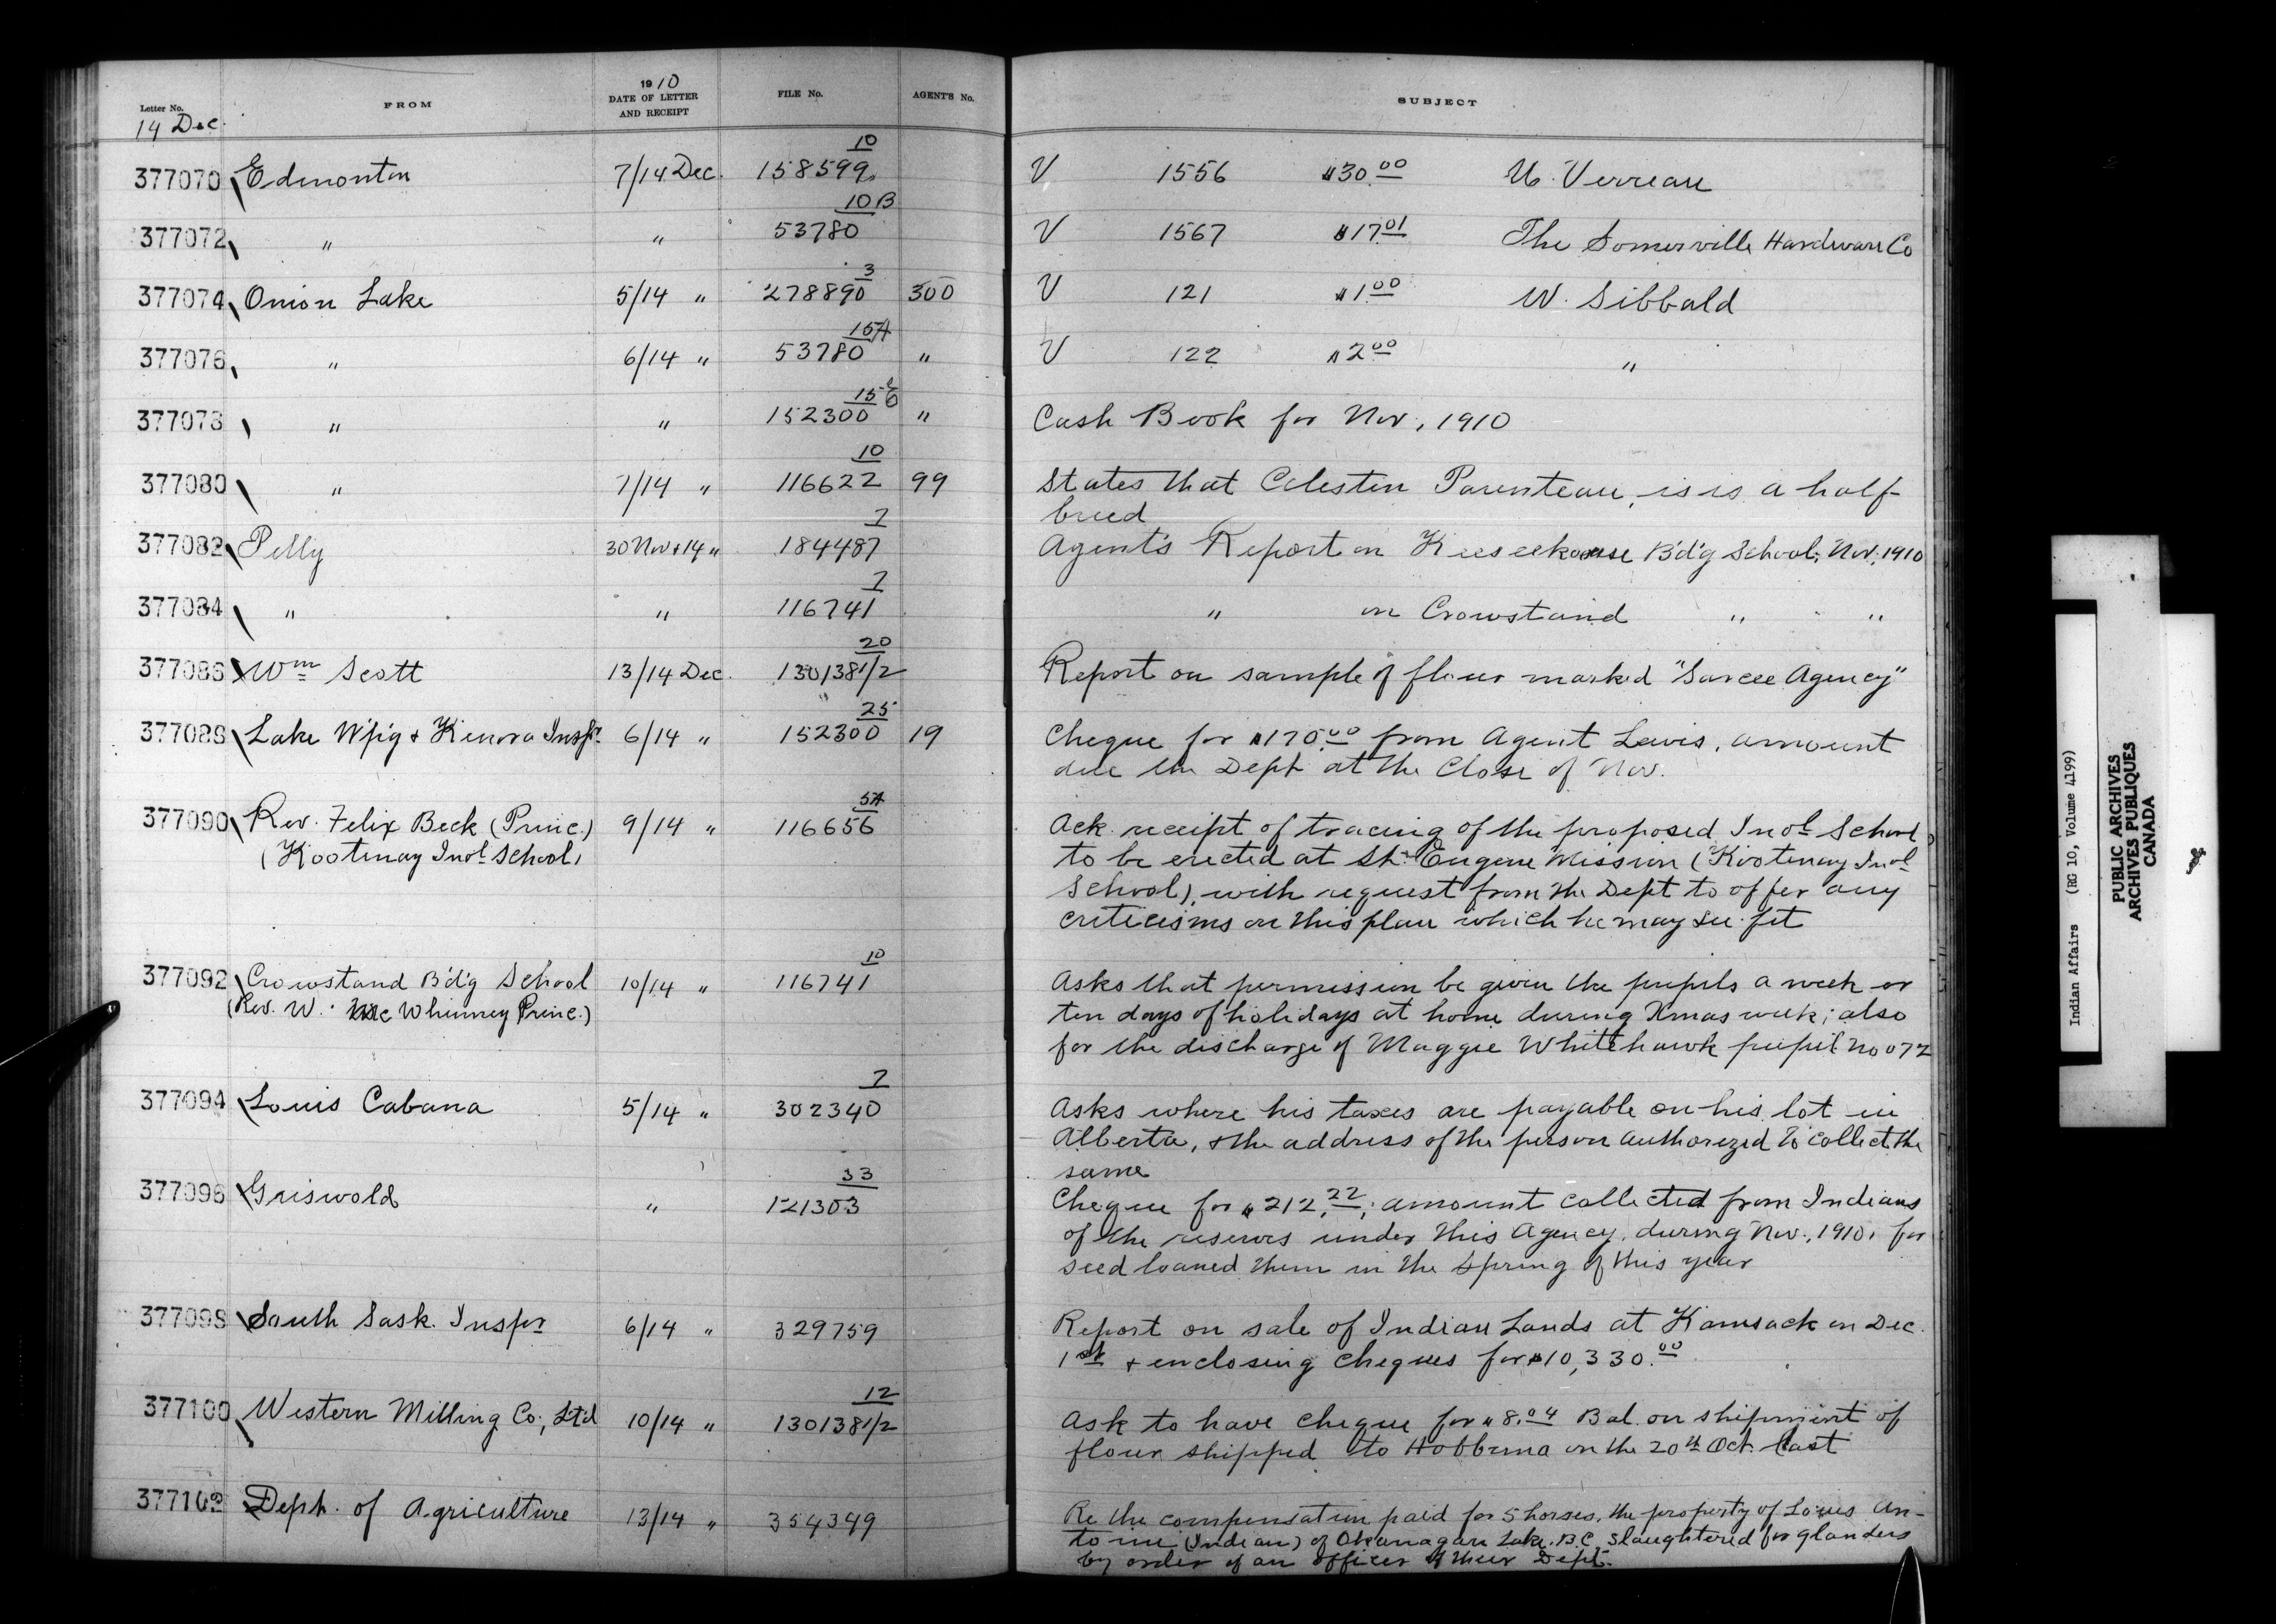 Letter No. FROM 1910 DATE OF LETTER AND RECEIPT FILE No. AGENT'S No. SUBJECT
14 Dec.
377070 Edmonton 7/14 Dec. 158599 10 V 1556 $30.00 Verreau
377072 " " 53780 10B V 1567 $17.01 The Somerville Hardware Co
377074 Onion Lake 5/14 " 278890 3 300 V 121 $1.00 W. Sibbald
377076 " 6/14 " 53780 15A " V 122 $2.00 "
377078 " " 152300 15 " Cash Book for Nov, 1910
377080 " 7/14 " 116622 10 99 States that Celestin Parenteau, is is a half-
breed
377082 Pelly 30 Nov & 14 " 184487 7 Agent's Report on Keeseekouse B'd'g School, Nov. 1910
377084 " " 116741 7 " on Crowstand " "
377086 Wm Scott 13/14 Dec. 130138 1/2 20 Report on sample of flour marked "Sarcee Agency"
377088 Lake W'p'g & Kenora Inspr. 6/14 " 152300 25 19 Cheque for $170.00 from Agent Lewis, amount
due the Dept at the close of Nov.
377090 Rev. Felix Beck (Princ.) 9/14 " 116656 5A Ack. receipt of tracing of the proposed Indl School
(Kootenay Indl School) to be erected at St. Eugene Mission (Kootenay Indl
School), with request from the Dept to offer any
criticisms on this plan which he may see fit
377092 Crowstand B'd'g School 10/14 " 116741 10 Asks that permission be given the pupils a week or
(Rev. W. McWhinney Princ.) ten days of holidays at home during Xmas week; also
for the discharge of Maggie Whitehawk pupil No 072
377094 Louis Cabana 5/14 " 302340 7 Asks where his taxes are payable on his lot in
Alberta, & the address of the person authorized to collect the
same
377096 Griswold " 121303 33 Cheque for $212.22, amount collected from Indians
of the reserves under this Agency, during Nov., 1910, for
seed loaned them in the Spring of this year
377098 South Sask. Inspr 6/14 " 329759 Report on sale of Indian Lands at Kamsack on Dec.
1st & enclosing cheques for $10,330.00
377100 Western Milling Co., Ltd 10/14 " 130138 1/2 12 Ask to have cheque for $8.04 Bal. on shipment of
flour shipped to Hobbema on the 20th Oct. last
377102 Dept. of Agriculture 13/14 " 354349 Re the compensation paid for 5 horses, the property of Louis An-
toine (Indian) of Okanagan Lake, B.C. slaughtered for glanders
by order of an officer of their Dept.
Indian Affairs (RG 10, Volume 4199)
PUBLIC ARCHIVES
ARCHIVES PUBLIQUES
CANADA